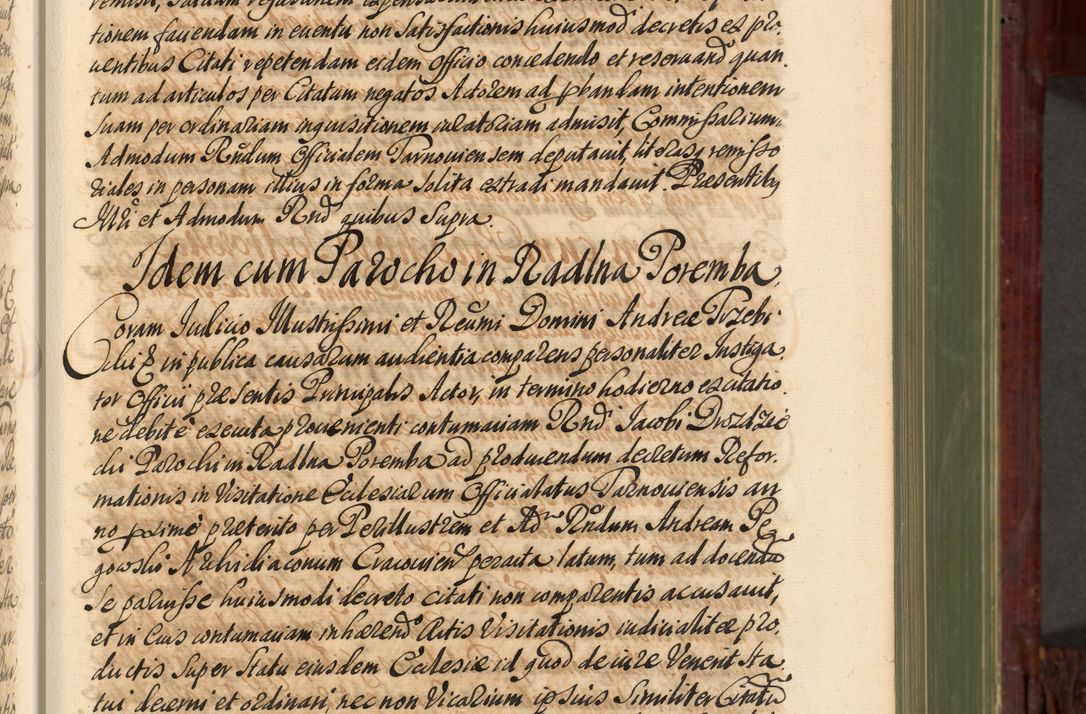 tionem faciendam in euentu non Satisfactionis huiusmodi decretis ex pro
uentibus Citati repetendam eidem Officio concedendo et reseruand quan
tum ad articulos per Citatum negatos Actorem ad pbandam intentionem
Suam per ordinariam inquisitionem iuratoriam admisit, Commissarium
Admodum Rndum Officialem Tarnouiensem deputauit, literasq remisso
riales in personam illius in forma Solita extradi mandauit. Præsentibus
Illri et Admodum Rnd quibus Supra.
Idem cum Parocho in Radlna Poremba
Coram Iudicio Illustrissimi et Reumi Domini Andreæ Trzebi
cki & in publica causarum audientia comparens personaliter Instiga
tor Officii præsentis Principalis Actor, in termino hodierno ex citatio
ne debite executa proueniente contumaciam Rnd Iacobi Drozdzie
cki Parochi in Radlna Poremba ad producendum decretum Refor
mationis in Visitatione Ecclesiarum Officialatus Tarnouiensis an
no pximè præterito per Perillustrem et Adm Rndum Andream Pe
gowski Archidiaconum Cracouien peracta latum, tum ad docendum
Se paruisse huiusmodi decreto citati non comparentis accusauit,
et in Eius contumaciam inhærend Actis Visitationis iudicialiter pro
ductis Super Statu eiusdem Ecclesiæ id quod de iure Venerit Sta
tui decerni et ordinari, nec non Vicarium ipsius Similiter Citatum